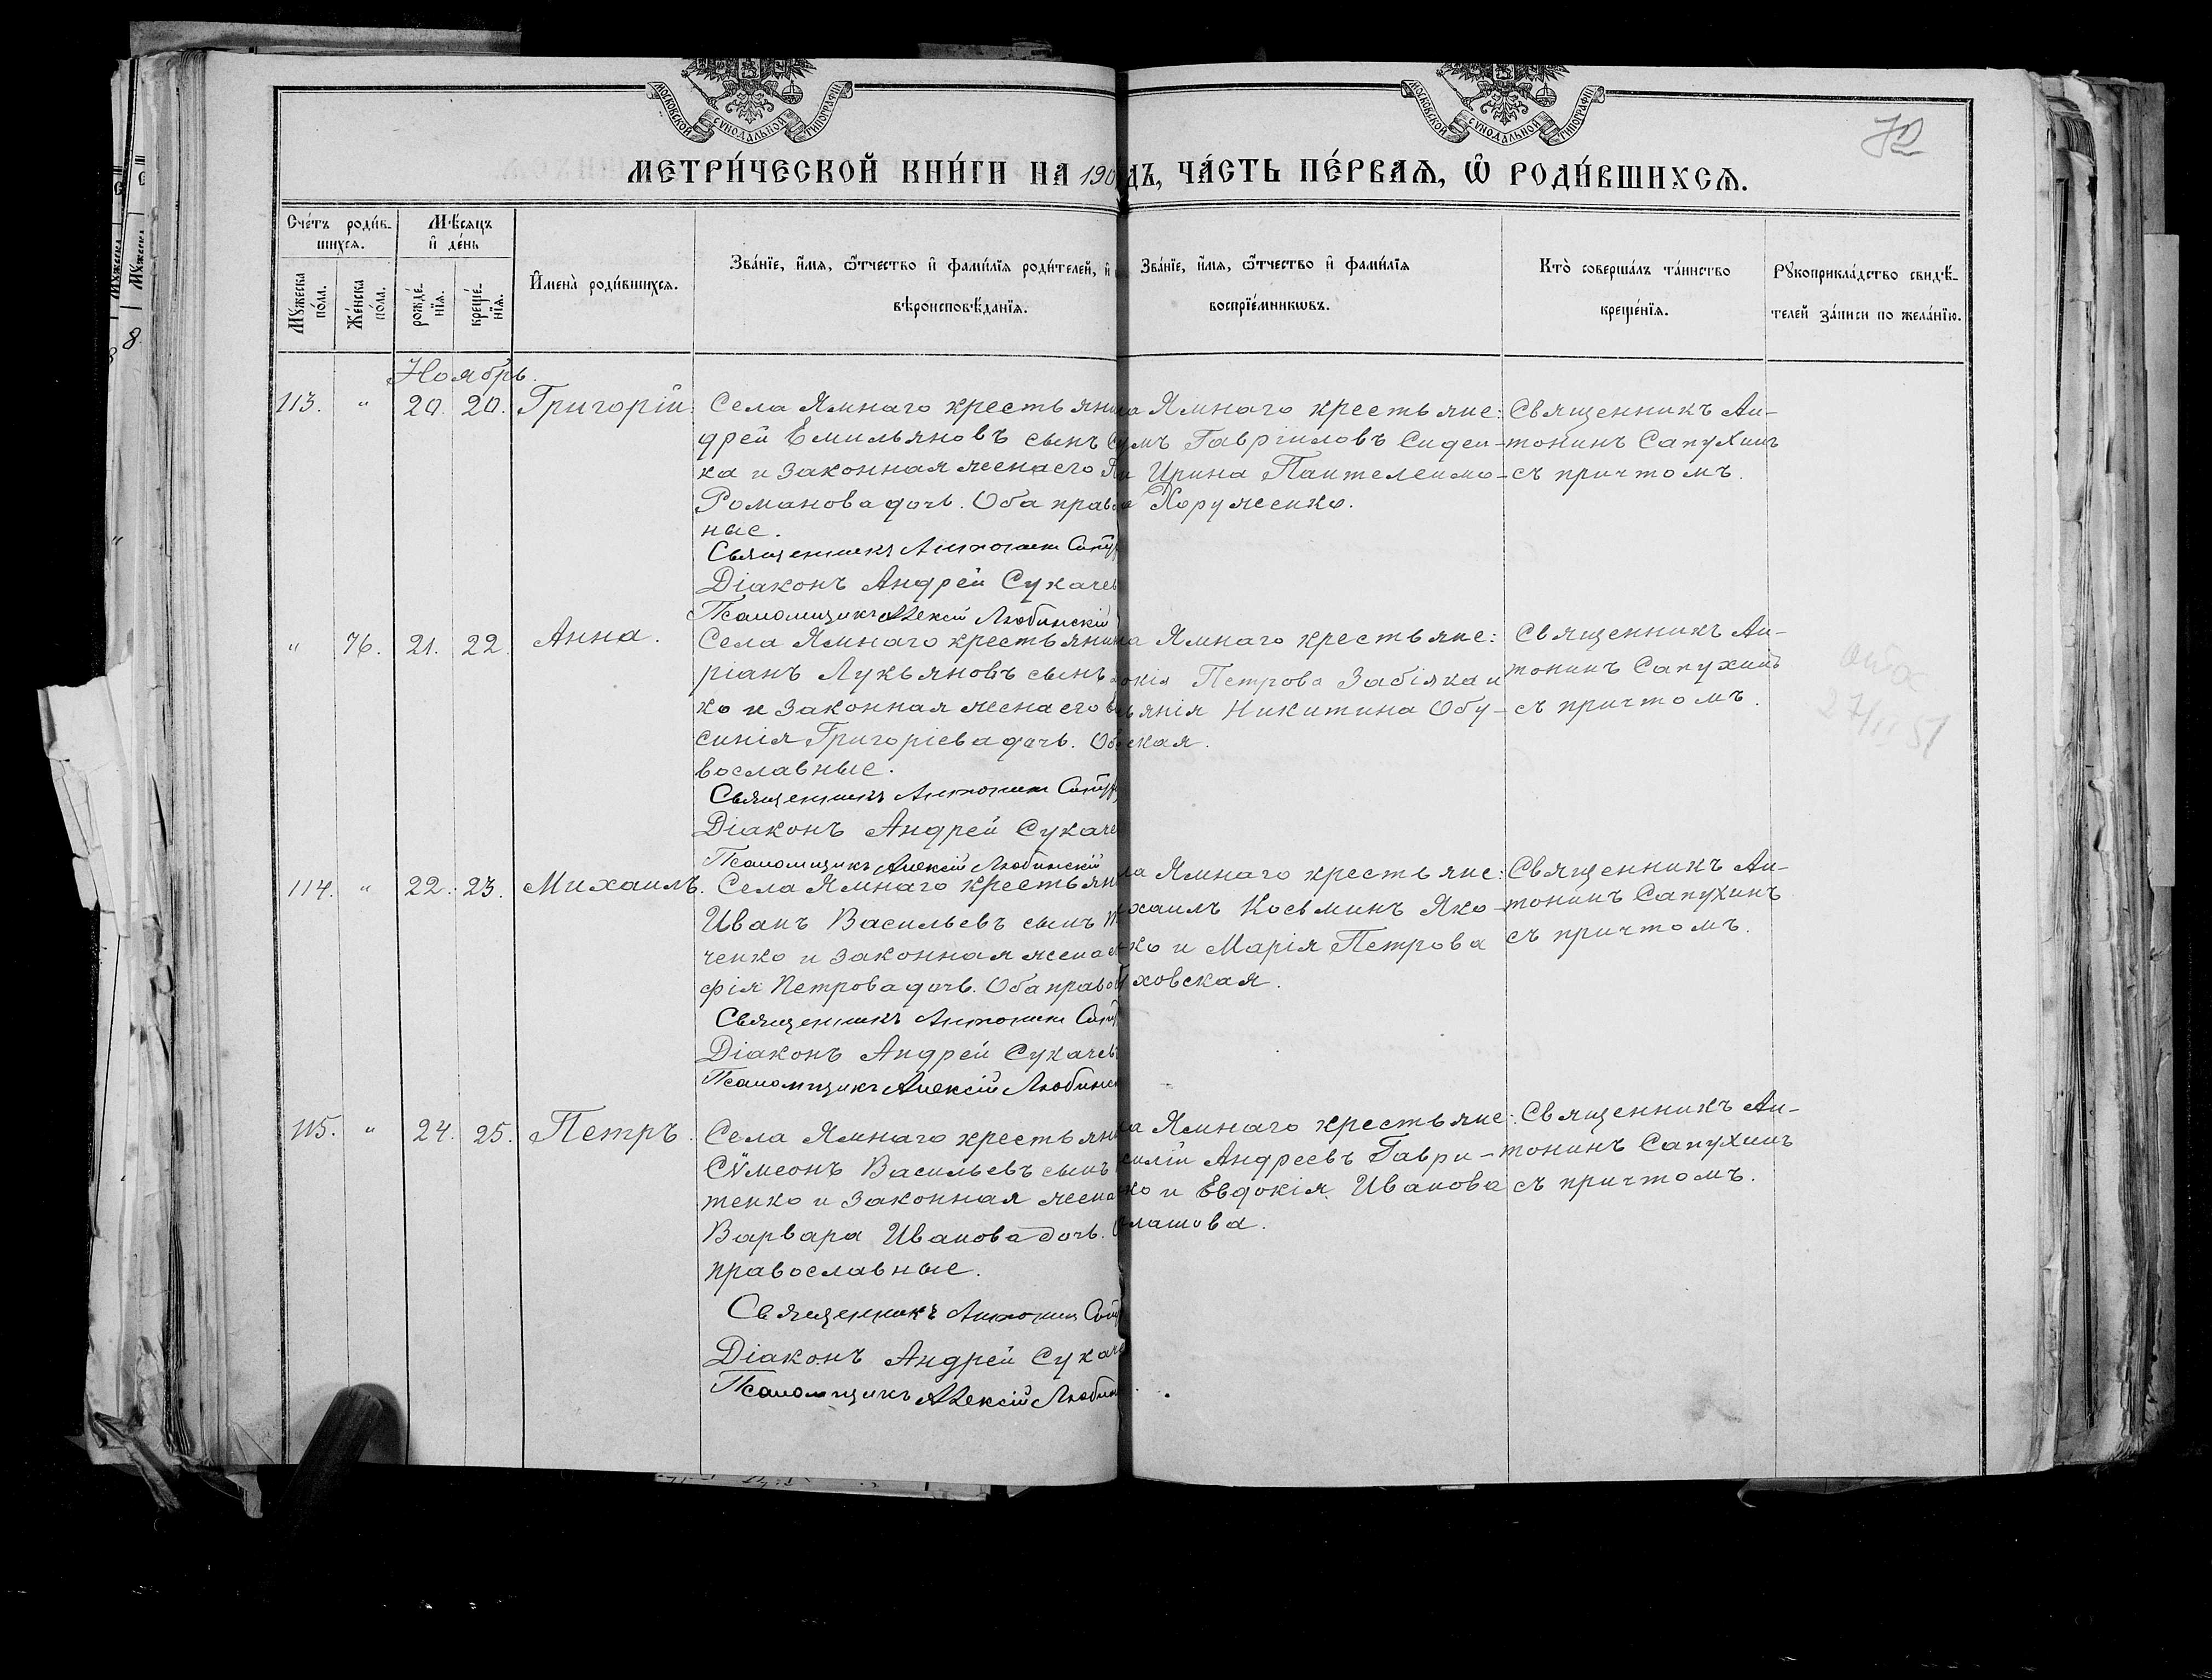 МОСКОВСКОЙ СѴНОДАЛЬНОЙ ТИПОГРАФІИ
МОСКОВСКОЙ СѴНОДАЛЬНОЙ ТИПОГРАФІИ
72
МЕТРИ́ЧЕСКОЙ КНИ́ГИ НА 190
дъ, ЧА́СТЬ ПЕ́РВАЯ, Ѡ РОДИ́ВШИХСЯ.
Сче́тъ роди́в-
шихся.
Мѣ́сяцъ
и де́нь
Му́жеска
по́ла.
Же́нска
по́ла.
рожде́-
нія.
креще́-
нія.
Имена̀ роди́вшихся.
Зва́ніе, и́мя, ѻ́тчество и фами́лія роди́телей, и
вѣроисповѣ́данія.
Зва́ніе, и́мя, ѻ́тчество и фами́лія
воспріе́мниковъ.
Кто̀ соверша́лъ та́инство
креще́нія.
Рукоприкла́дство свидѣ́-
телей за́писи по жела́нію.
8.
Ноябрь.
113. " 20. 20. Григорій.
Села Ямнаго крестьяни
дрей Емильяновъ сынъ
ка и законная жена его
Романова дочь. Оба прав
ные.
Священникъ Антонин
Діаконъ Андрей Сукачев
Псаломщикъ Алексій Любинскій
Ямнаго крестьяне:
Гавріиловъ Сиден-
Ирина Пантелеимо-
Хоруженко.
Священникъ Ан-
тонинъ Сапухинъ
съ причтомъ.
" 76. 21. 22. Анна.
Села Ямнаго крестьянин
ріанъ Лукьяновъ сынъ
ко и законная жена его
синія Григоріева дочь.
вославные.
Священникъ Антонин
Діаконъ Андрей Сукаче
Псаломщикъ Алексій Любинскій
Ямнаго крестьяне:
окія Петрова Забіяка и
ьянія Никитина Обу-
ская.
Священникъ Ан-
тонинъ Сапухинъ
съ причтомъ.
114. " 22. 23. Михаилъ.
Села Ямнаго крестьян
Иванъ Васильевъ сынъ
ченко и законная жена
фія Петрова дочь. Оба право
Священникъ Антонин
Діаконъ Андрей Сукачев
Псаломщикъ Алексій Любинс
ла Ямнаго крестьяне:
хаилъ Косьминъ Яко-
ко и Марія Петрова
ховская.
Священникъ Ан-
тонинъ Сапухинъ
съ причтомъ.
115. " 24. 25. Петръ.
Села Ямнаго крестьян
Сѵмеонъ Васильевъ сынъ
тенко и законная жена
Варвара Иванова дочь.
православные.
Священникъ Антонин
Діаконъ Андрей Сукаче
Псаломщикъ Алексій Любин
Ямнаго крестьяне:
силій Андреевъ Гаври-
ко и Евдокія Иванова
лашова.
Священникъ Ан-
тонинъ Сапухинъ
съ причтомъ.